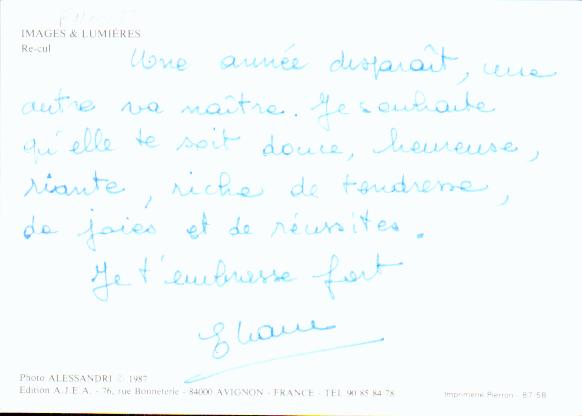 IMAGES & LUMIÈRES
Re-cul
Une année disparaît, une
autre va naître. Je souhaite
qu'elle te soit douce, heureuse,
riante, riche de tendresse,
de joies et de réussites.
Je t'embrasse fort
Photo ALESSANDRI © 1987
Edition A.J.E.A. - 76, rue Bonneterie - 84000 AVIGNON - FRANCE - TEL 90 85 84 78
Imprimerie Pierron 87-58